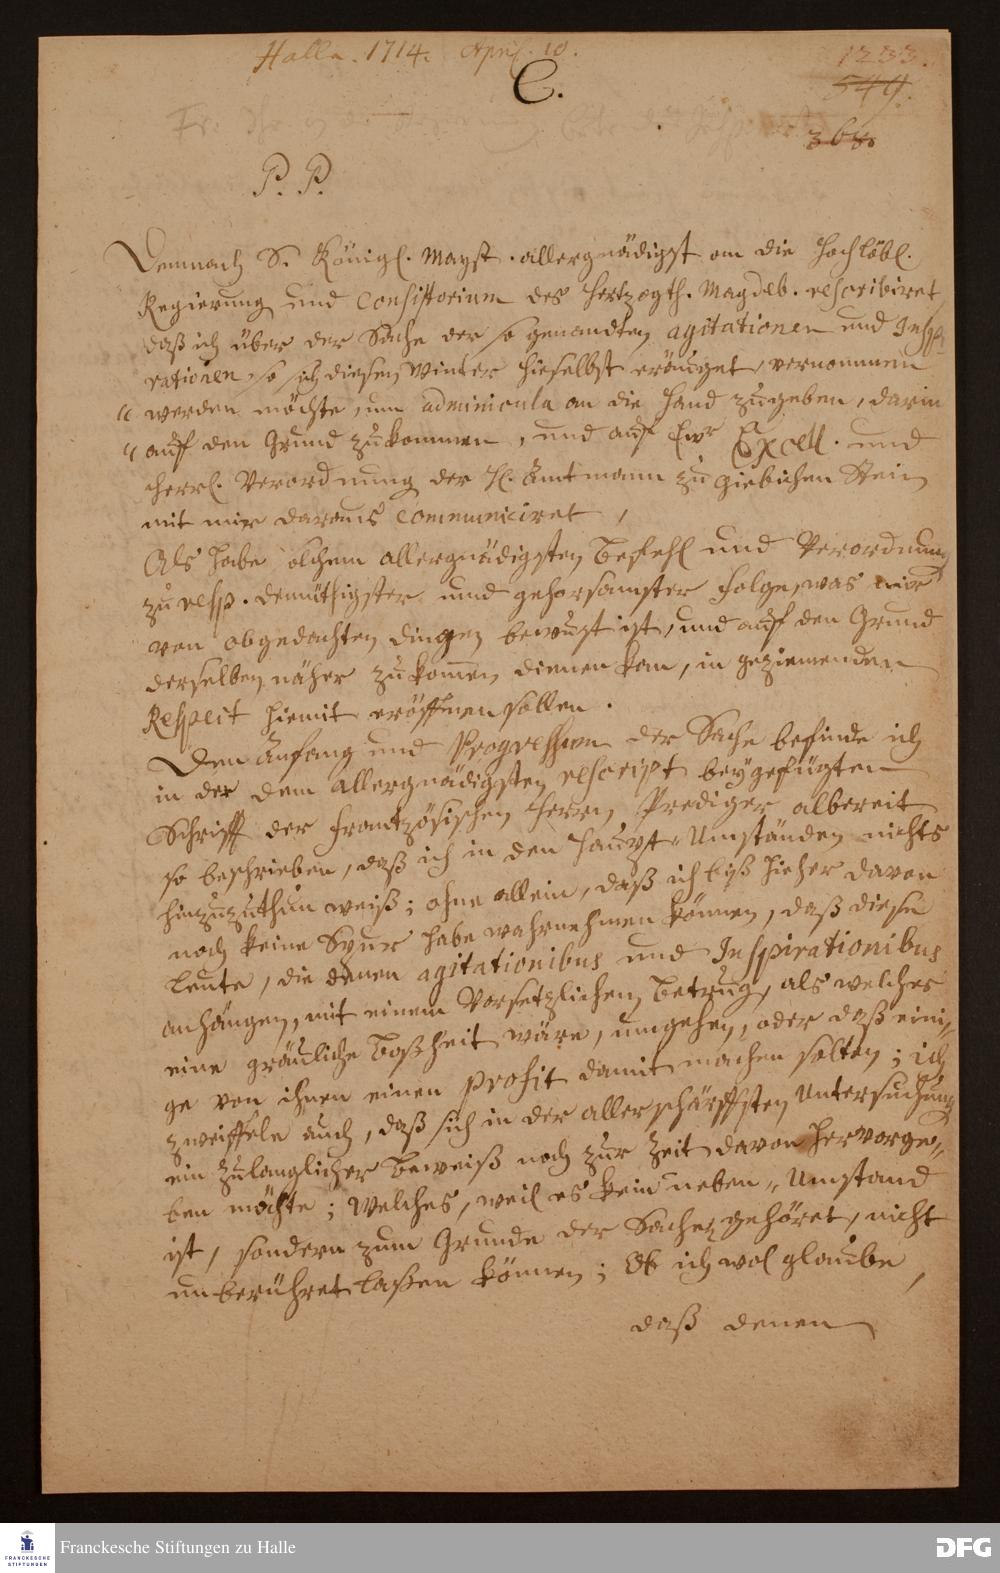 Halle. 1714. April. 10.
1233.
C.
549.
368.
P. P.
Demnach S. Königl. Mayst. allergnädigst an die Hochlöbl.
Regierung und Consistorium des Hertzogth. Magdeb. rescribiret,
daß ich über der Sache der so genandten agitationen und Inspi-
rationen so sich diesen Winter hieselbst eräuget, vernommen
" werden möchte, um adminicula an die Hand zugeben, darin
" auff den Grund zukommen, und auff Ewr Excell. und
Herrl. Verordnung der H. Amtmann zu Giebichen Stein
mit mir daraus communiciret,
Als habe solchem allergnädigsten Befehl und Verordnung
zu resp. demüthigster und gehorsamster Folge, was mir
von obgedachten dingen bewust ist, und auff den Grund
derselben näher zukom̅en dienen kan, in geziemenden
Respect hiemit eröffnen sollen.
Den Anfang und Progression der Sache befinde ich
in der dem allergnädigsten rescript beygefügten
Schrifft der Frantzösischen Herrn Prediger albereit
so beschrieben, daß ich in den Haupt-Umständen nichts
hinzuzuthun weiß; ohne allein, daß ich biß hieher davon
noch keine Spur habe wahrnehmen können, daß diese
Leute, die denen agitationibus und Inspirationibus
anhängen, mit einem Vorsetzlichen Betrug, als welches
eine gräuliche Boßheit wäre, umgehen, oder daß eini-
ge von ihnen einen profit damit machen solten; ich
zweiffele auch, daß sich in der allerschärffsten Untersuchung
ein zulänglicher Beweiß noch zur Zeit davon hervorge-
ben möchte; Welches, weil es kein neben-Umstand
ist, sondern zum Grunde der Sache gehöret, nicht
unberühret laßen können; Ob ich wol glaube,
daß denen
Franckesche Stiftungen zu Halle
FRANCKESCHE
STIFTUNGEN
DFG